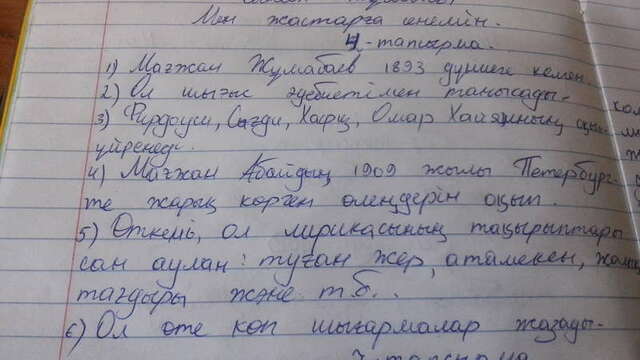 Мен жастарға сенемін.
4-тапсырма.
1) Мағжан Жұмабаев 1893 дүниеге келген.
2) Ол шығыс әдебиетімен танысады.
3) Фирдоуси, Сағди, Хафиз, Омар Хайямның
үйренеді.
4) Мағжан Абайдың 1909 жылы Петербург-
те жарық көрген өлеңдерін оқып.
5) Өткені, ол лирикасының тақырыптары
сан аулан: туған жер, атамекен,
тағдыры және т.б..
6) Ол өте көп шығармалар жазады.